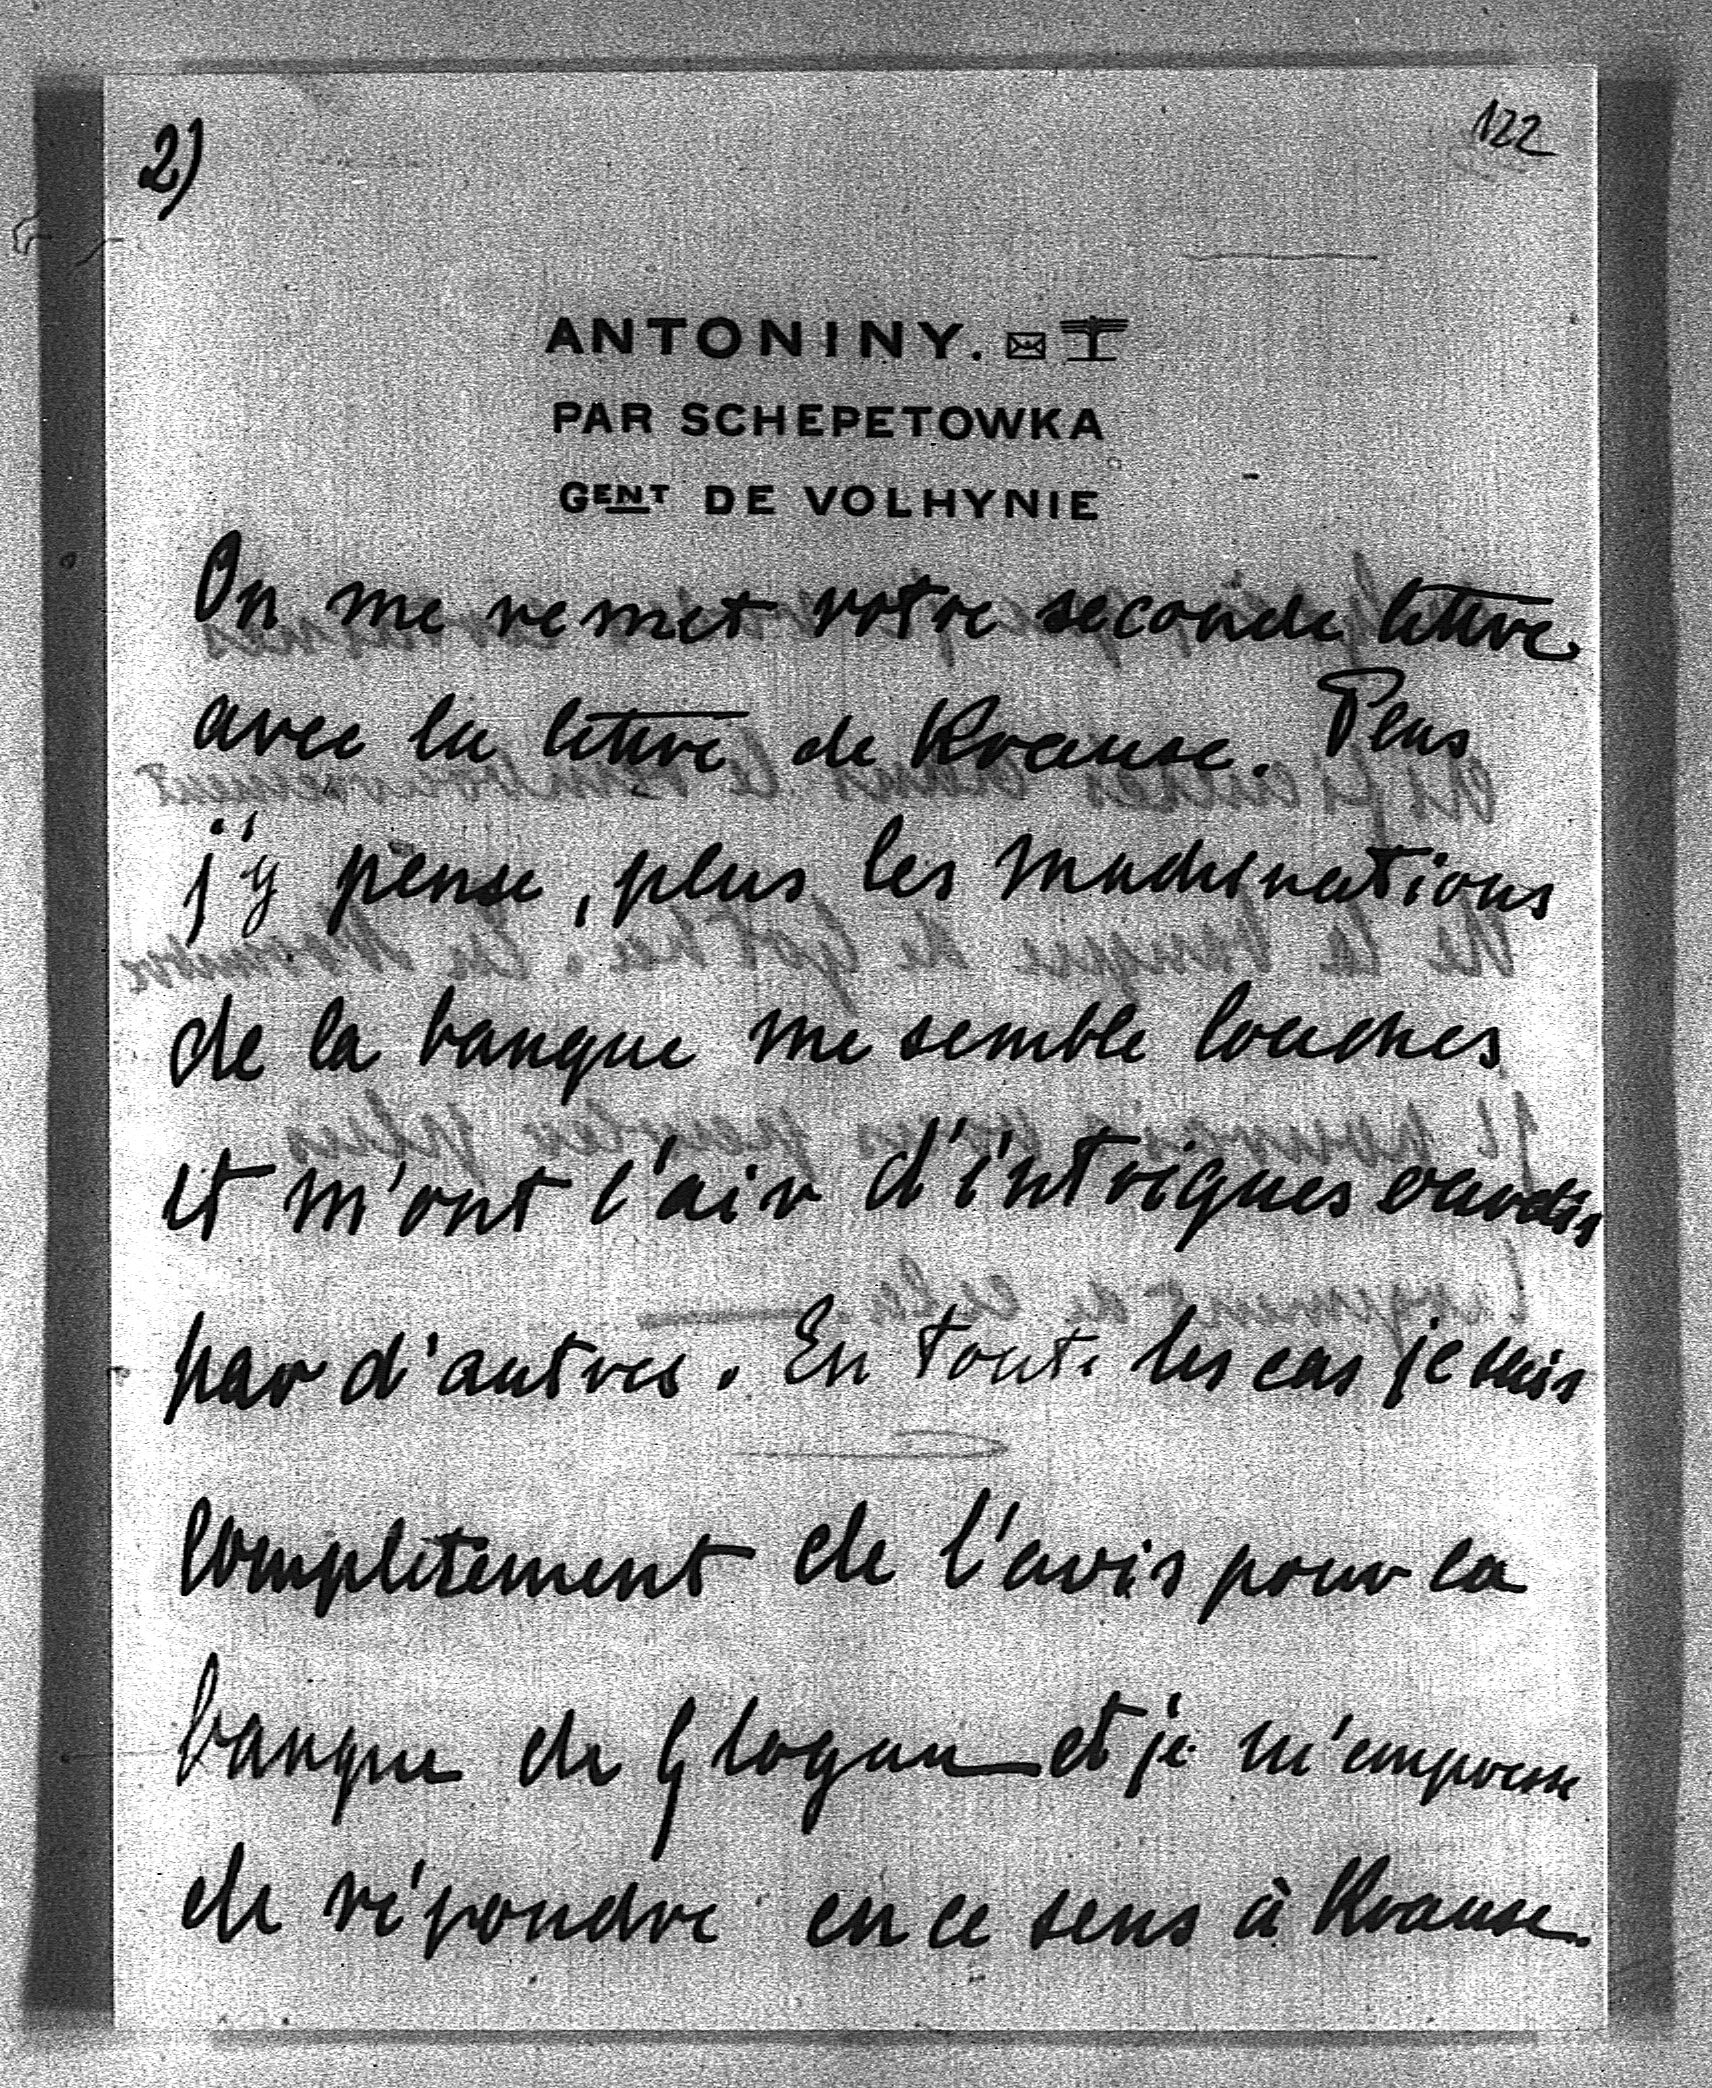 2)
122
ANTONINY.
PAR SCHEPETOWKA
GENT DE VOLHYNIE
On me remet votre seconde lettre
avec la lettre de Krause. Plus
j'y pense, plus les machinations
de la banque me semble louches
et m'ont l'air d'intrigues ourdis
par d'autres. En tout les cas je suis
complètement de l'avis pour la
banque de Glogau et je m'empresse
de répondre en ce sens à Krause.